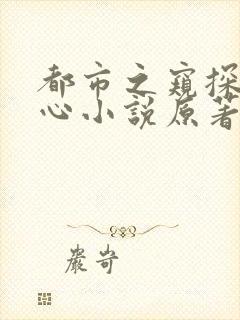 都市之窥探
心小説原著
嚴岢